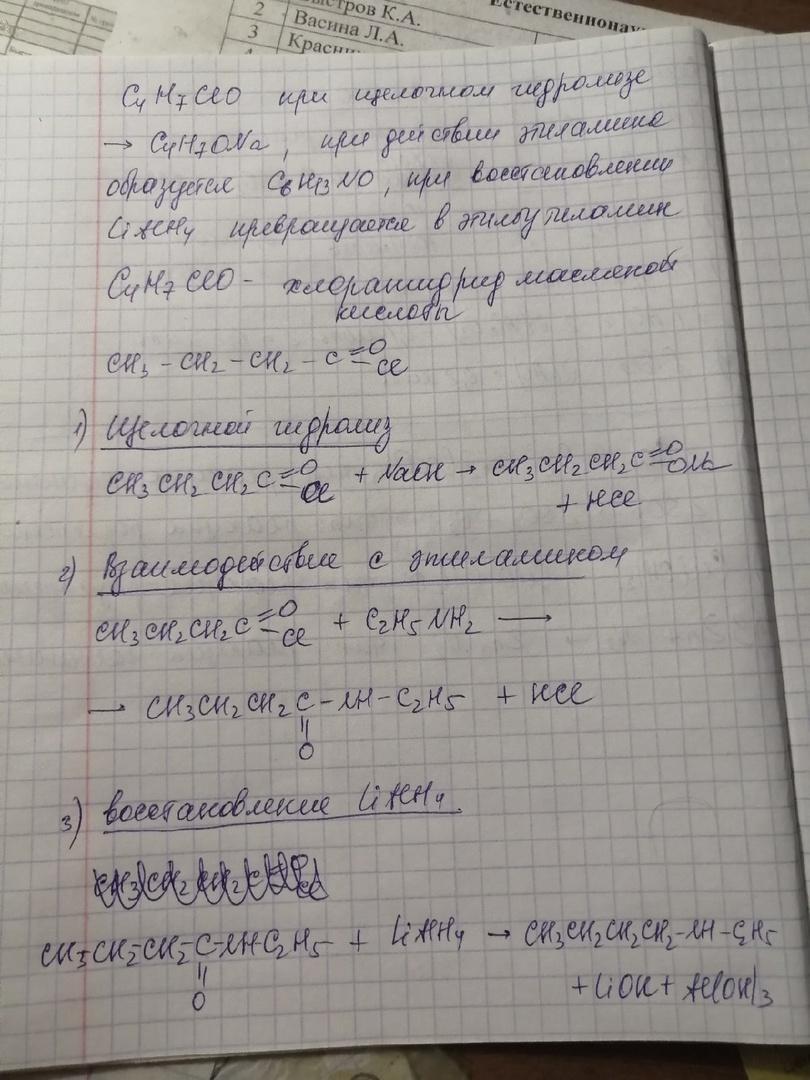 2
Быстров К.А.
Естественнонау
3
Васина Л.А.
Красни
C4H7ClO при щелочном гидролизе
→ C4H7ONa, при действии этиламина
образуется C6H13NO, при восстановлении
LiAlH4 превращается в этилбутиламин
C4H7ClO - хлорангидрид масляной
кислоты
CH3 - CH2 - CH2 - C =O -Cl
1) Щелочной гидролиз
CH3CH2CH2C =O -Cl + NaOH → CH3CH2CH2C =O -ONa
+ HCl
2) Взаимодействие с этиламином
CH3CH2CH2C =O -Cl + C2H5NH2 ⟶
→ CH3CH2CH2C - NH - C2H5 + HCl
||
O
3) восстановление LiAlH4.
CH3-CH2-CH2-C-NHC2H5 + LiAlH4 → CH3CH2CH2CH2-NH-C2H5
||
O
+ LiOH + Al(OH)3